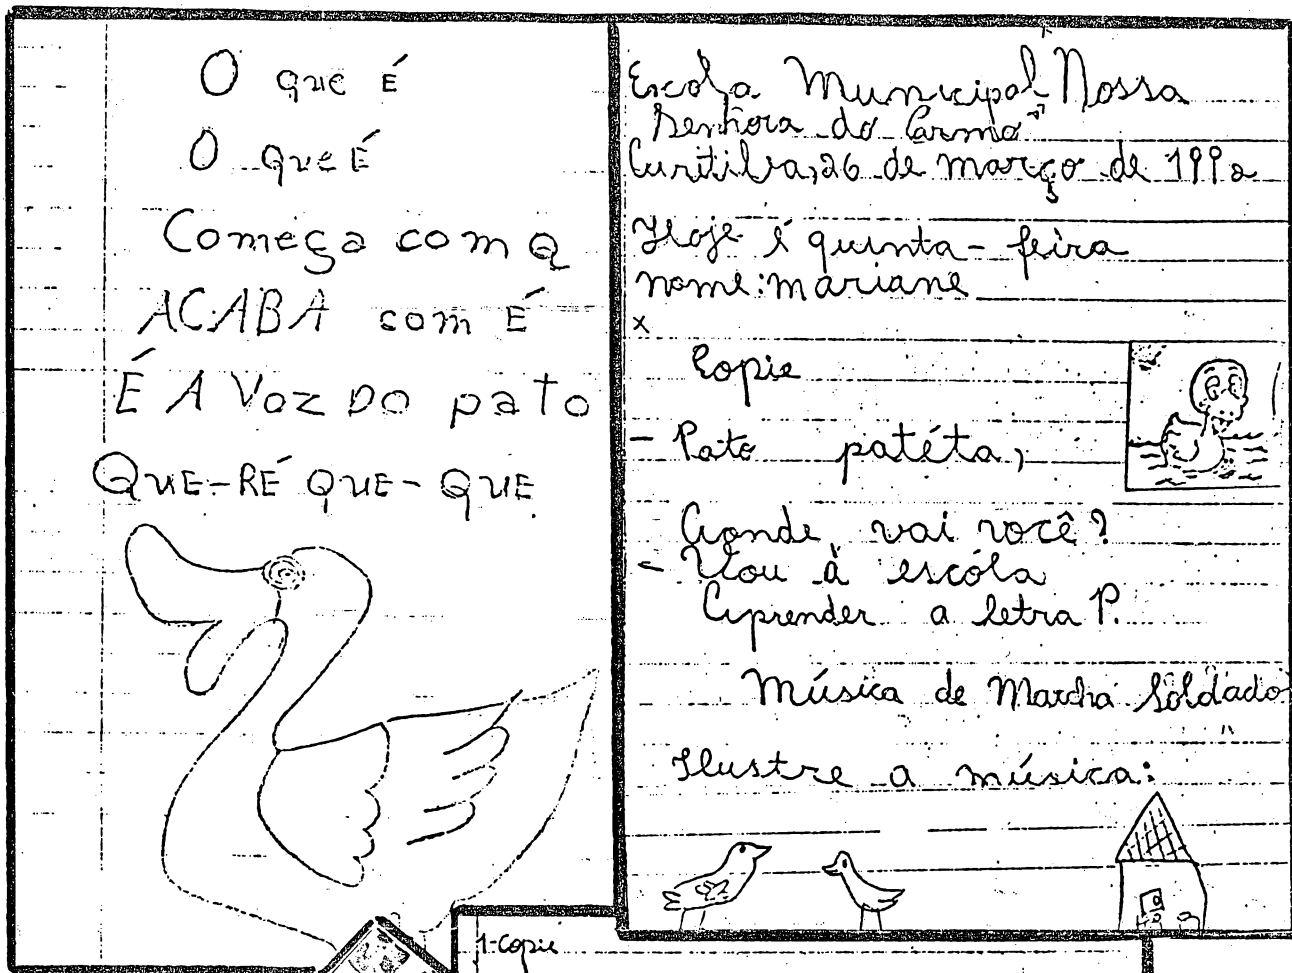 O que É
O que É
Começa com Q
ACABA com É
É A Voz DO pato
QUE-RÉ QUE-QUE
Escola Municipal Nossa
Senhora do Carmo
Curitiba, 26 de março de 1992
Hoje é quinta-feira
nome: mariane
x
Copie
- Pato patéta,
Aonde vai você?
- Vou à escóla
Aprender a letra P.
Música de Marcha Soldado
Ilustre a música:
1-Copie